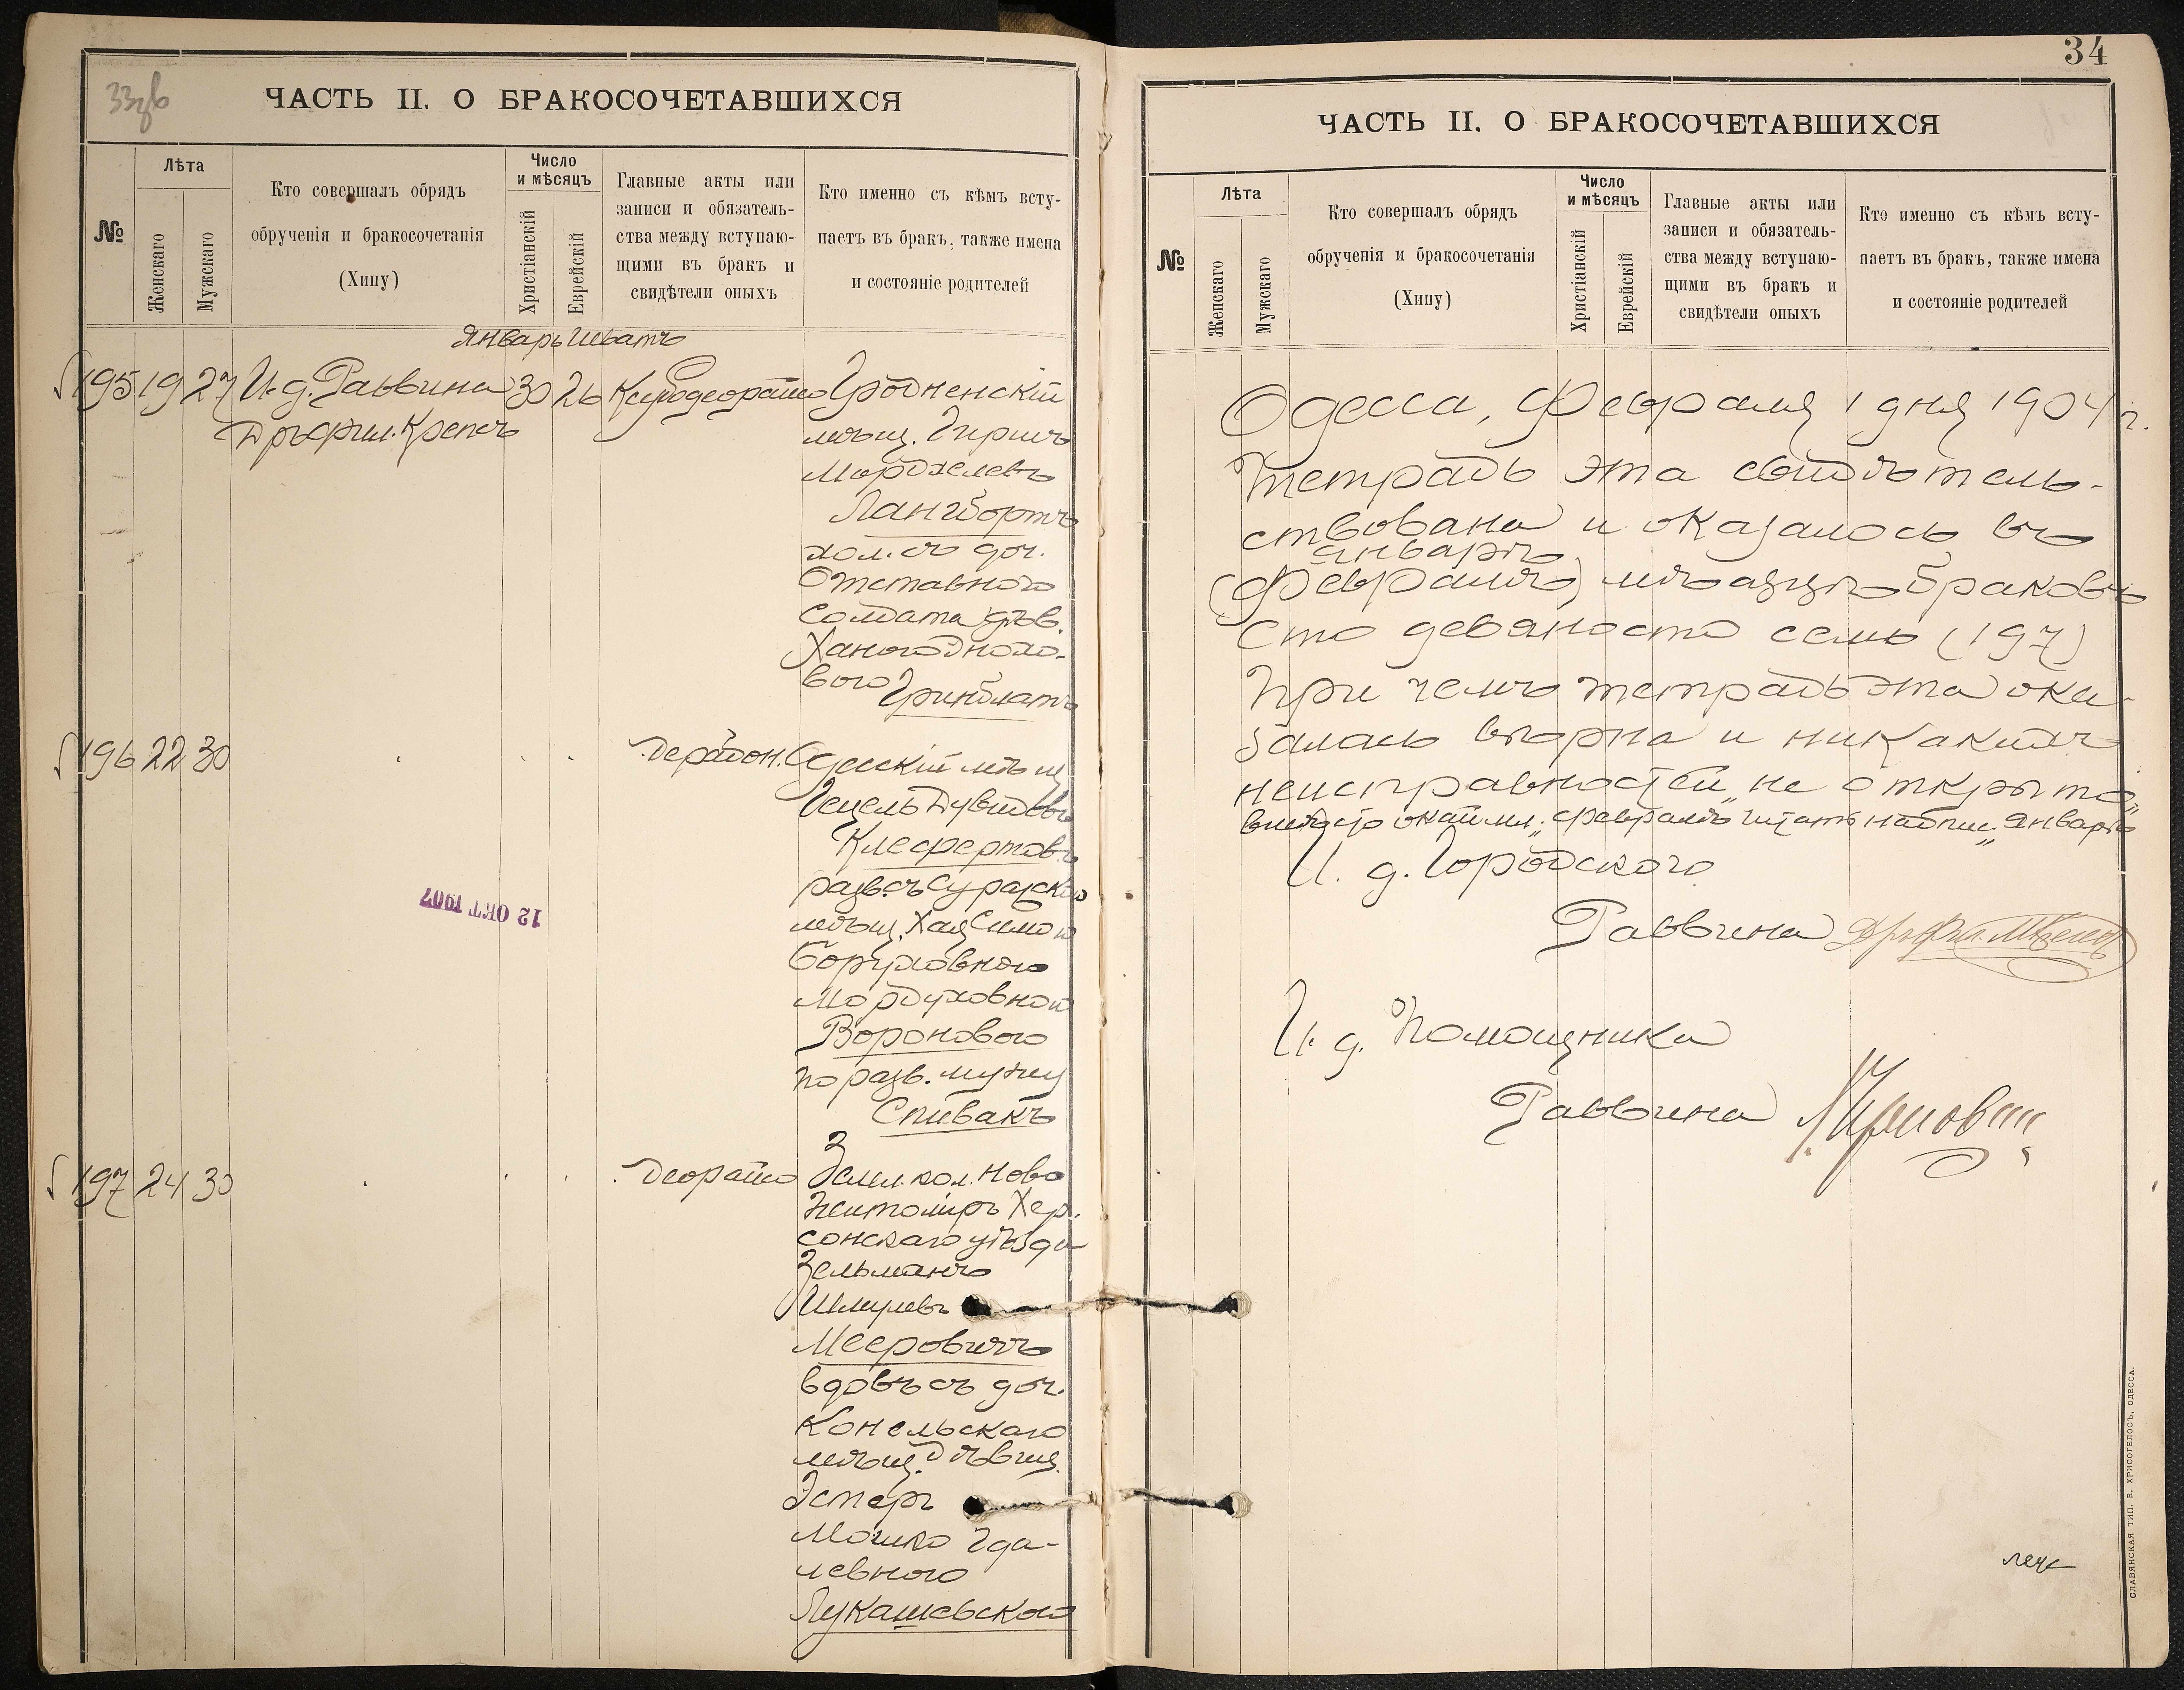 ЧАСТЬ II. О БРАКОСОЧЕТАВШИХСЯ
№
Лѣта
Женскаго
Мужскаго
Кто совершалъ обрядъ
обрученія и бракосочетанія
(Хипу)
Число
и мѣсяцъ
Христіанскій
Еврейскій
Главные акты или
записи и обязатель-
ства между вступаю-
щими въ бракъ и
свидѣтели оныхъ
Кто именно съ кѣмъ всту-
паетъ въ бракъ, также имена
и состояніе родителей
Январь Шватъ
195 19 27 И. д. Раввина 30 26 Гродненскій
Дръ фил. Крепсъ
мѣщ. Гиршъ
Мордхелевъ
Лангбортъ
хол. съ доч.
Отставного
солдата дѣв.
Ханою Dнохо-
вою
Гринблатъ
196 22 30 Дерабон. Одесскій мѣщ
Гецель Дувидовъ
Клефертовъ
разв. съ Суражскою
мѣщ. Хая Симою
Боруховною
Мордуховною
Вороновою
по разв. мужу
Спивакъ
12 ОКТ 1907
197 24 30 Деорайто Земл. кол. Ново
Житомиръ Хер.
сонскаго уѣзда
Зельманъ
Шмулевъ
Мееровичъ
вдовъ съ доч.
Конельскаго
мѣщ. дѣвиц.
Эстеръ
Мошко Гда-
левною
Лукашевскою
34
ЧАСТЬ II. О БРАКОСОЧЕТАВШИХСЯ
№
Лѣта
Женскаго
Мужскаго
Кто совершалъ обрядъ
обрученія и бракосочетанія
(Хипу)
Число
и мѣсяцъ
Христіанскій
Еврейскій
Главные акты или
записи и обязатель-
ства между вступаю-
щими въ бракъ и
свидѣтели оныхъ
Кто именно съ кѣмъ всту-
паетъ въ бракъ, также имена
и состояніе родителей
Одесса, Февраля 1 дня 1904 г.
Тетрадь эта свидѣтель-
ствована и оказалось въ
январѣ
(Февралѣ) мѣсяцѣ браковъ
сто девяносто семь (197)
При чемъ тетрадь эта ока-
залась вѣрна и никакихъ
неисправностей не открыто
вмѣсто окаймл. „февралѣ читать надпис. „Январѣ
И. д. Городского
Раввина
И. д. Помощника
Раввина
СЛАВЯНСКАЯ ТИП. Е. ХРИСОГЕЛОСЪ, ОДЕССА.